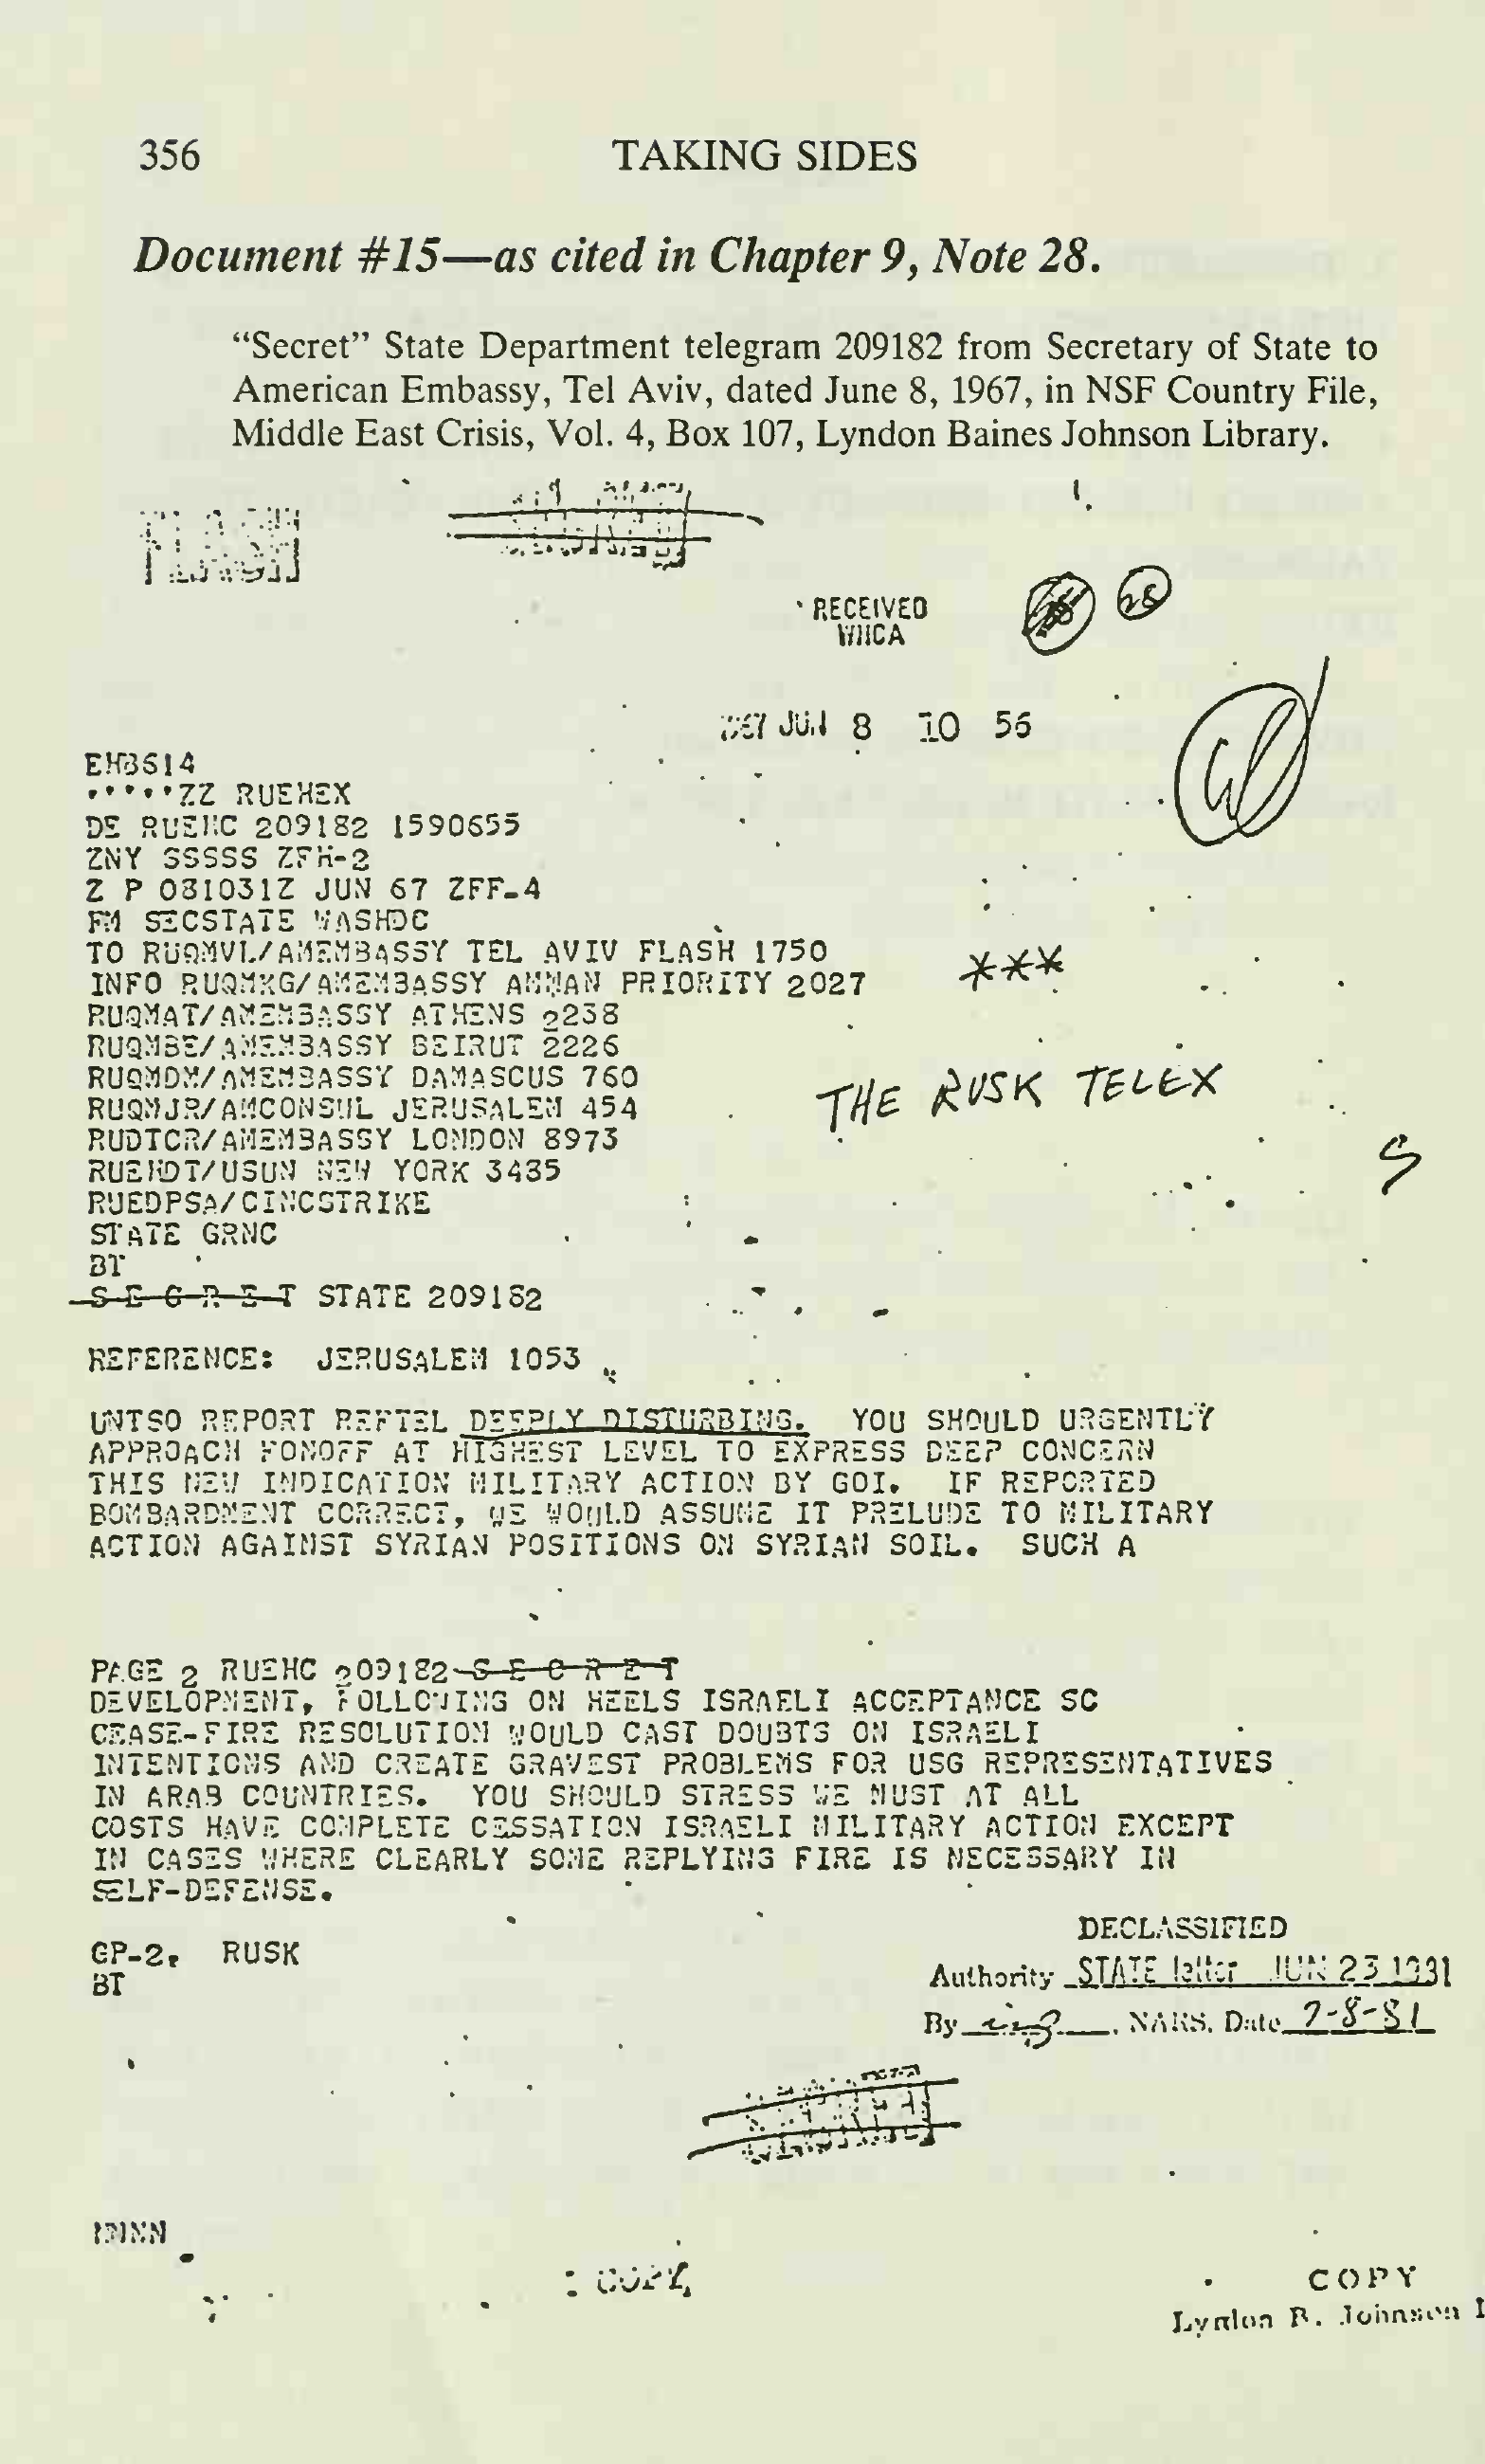 356 TAKING SIDES
Document #15—as cited in Chapter 9, Note 28.
“Secret” State Department telegram 209182 from Secretary of State to
American Embassy, Tel Aviv, dated June 8, 1967, in NSF Country File,
Middle East Crisis, Vol. 4, Box 107, Lyndon Baines Johnson Library.
FLASH
RECEIVED
WHCA
28
JUN 8 10 56
EHB614
ZZ RUEHEX
DE RUEHC 209182 1590655
ZNY SSSSS ZFH-2
Z P 081031Z JUN 67 ZFF-4
FM SECSTATE WASHDC
TO RUQMVL/AMEMBASSY TEL AVIV FLASH 1750
INFO RUQMKG/AMEMBASSY AMMAN PRIORITY 2027
***
RUQMAT/AMEMBASSY ATHENS 2238
RUQMBE/AMEMBASSY BEIRUT 2226
RUQMDM/AMEMBASSY DAMASCUS 760
THE RUSK TELEX
RUQMJR/AMCONSUL JERUSALEM 454
RUDTCR/AMEMBASSY LONDON 8973
RUEHDT/USUN NEW YORK 3435
RUEDPSA/CINCSTRIKE
STATE GRNC
BT
S E C R E T STATE 209182
REFERENCE: JERUSALEM 1053
UNTSO REPORT REFTEL DEEPLY DISTURBING. YOU SHOULD URGENTLY
APPROACH FONOFF AT HIGHEST LEVEL TO EXPRESS DEEP CONCERN
THIS NEW INDICATION MILITARY ACTION BY GOI. IF REPORTED
BOMBARDMENT CORRECT, WE WOULD ASSUME IT PRELUDE TO MILITARY
ACTION AGAINST SYRIAN POSITIONS ON SYRIAN SOIL. SUCH A
PAGE 2 RUEHC 209182 S E C R E T
DEVELOPMENT, FOLLOWING ON HEELS ISRAELI ACCEPTANCE SC
CEASE-FIRE RESOLUTION WOULD CAST DOUBTS ON ISRAELI
INTENTIONS AND CREATE GRAVEST PROBLEMS FOR USG REPRESENTATIVES
IN ARAB COUNTRIES. YOU SHOULD STRESS WE MUST AT ALL
COSTS HAVE COMPLETE CESSATION ISRAELI MILITARY ACTION EXCEPT
IN CASES WHERE CLEARLY SOME REPLYING FIRE IS NECESSARY IN
SELF-DEFENSE.
GP-2. RUSK
BT
DECLASSIFIED
Authority STATE letter JUN 23 1981
By , NARS, Date 7-8-81
NNNN
COPY
COPY
Lyndon B. Johnson